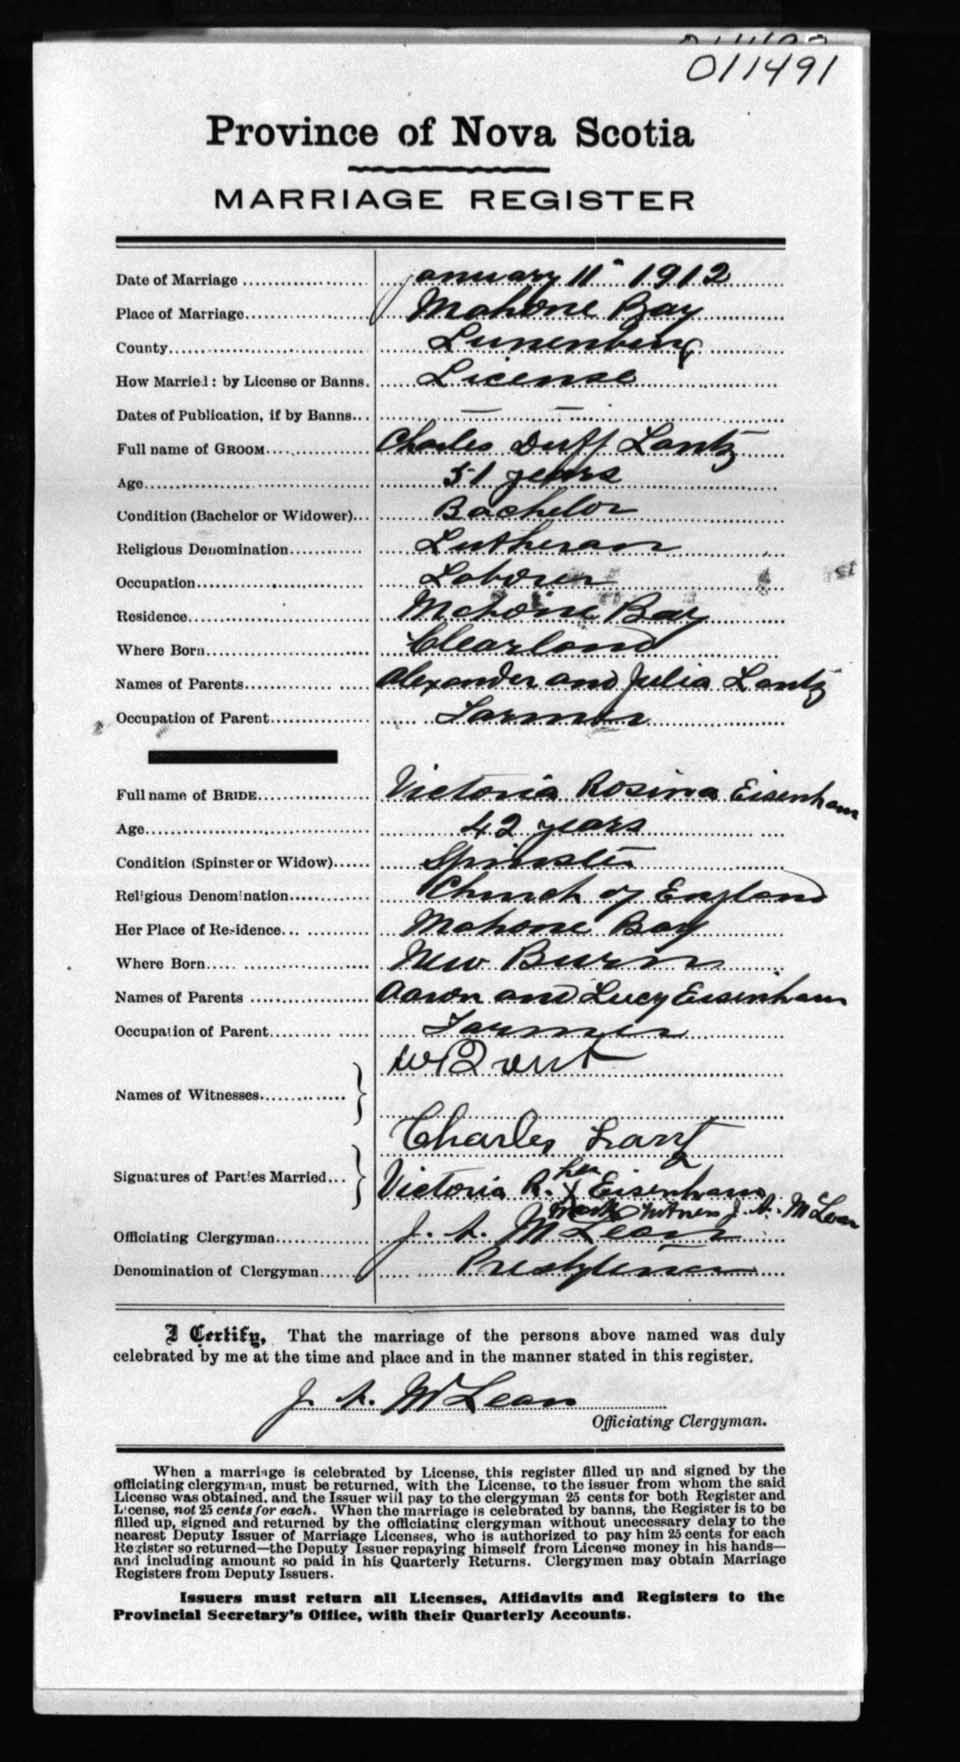 011491
Province of Nova Scotia
MARRIAGE REGISTER
Date of Marriage January 11" 1912
Place of Marriage Mahone Bay
County Lunenburg
How Married: by License or Banns. License
Dates of Publication, if by Banns — —
Full name of GROOM Charles Duff Lantz
Age 51 years
Condition (Bachelor or Widower) Bachelor
Religious Denomination Lutheran
Occupation Laborer
Residence Mahone Bay
Where Born Clearland
Names of Parents Alexander and Julia Lantz
Occupation of Parent Farmer
Full name of BRIDE Victoria Rosina Eisenham
Age 42 years
Condition (Spinster or Widow) Spinster
Religious Denomination Church of England
Her Place of Residence Mahone Bay
Where Born New Burn
Names of Parents Aaron and Lucy Eisenham
Occupation of Parent Farmer
Names of Witnesses
Charles Lantz
Signatures of Parties Married
her
Victoria R. X Eisenham
mark witness J. A. McLean
Officiating Clergyman J. A. McLean
Denomination of Clergyman Presbyterian
I Certify, That the marriage of the persons above named was duly
celebrated by me at the time and place and in the manner stated in this register.
J. A. McLean
Officiating Clergyman.
When a marriage is celebrated by License, this register filled up and signed by the
officiating clergyman, must be returned, with the License, to the issuer from whom the said
License was obtained, and the Issuer will pay to the clergyman 25 cents for both Register and
License, not 25 cents for each. When the marriage is celebrated by banns, the Register is to be
filled up, signed and returned by the officiating clergyman without unecessary delay to the
nearest Deputy Issuer of Marriage Licenses, who is authorized to pay him 25 cents for each
Register so returned—the Deputy Issuer repaying himself from License money in his hands—
and including amount so paid in his Quarterly Returns. Clergymen may obtain Marriage
Registers from Deputy Issuers.
Issuers must return all Licenses, Affidavits and Registers to the
Provincial Secretary's Office, with their Quarterly Accounts.